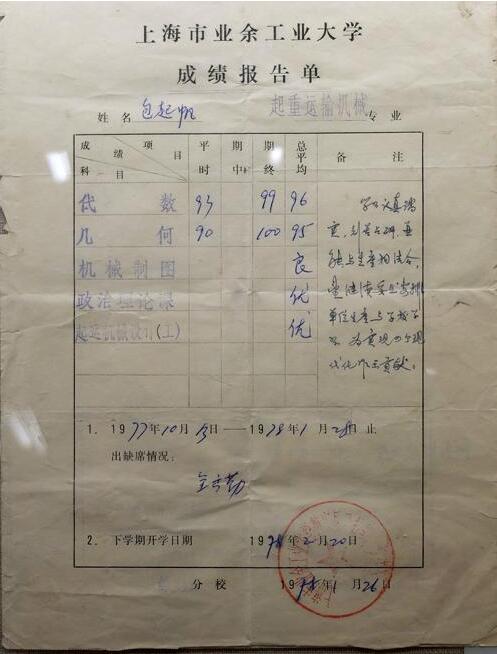 上海市业余工业大学
成绩报告单
姓名 包起帆 起重运输机械 专业
成绩 项目 科目 平时 期中 期终 总平均 备注
代数 93 99 96
几何 90 100 95
机械制图 良
政治理论课 优
起运机械设计(工) 优
学习认真踏
实,刻苦钻研,并
能与生产相结合,
单位生产与学校学
习,为实现四个现
代化作出贡献。
1. 1977年10月13日——1978年1月28日止
出缺席情况:
全出勤
2. 下学期开学日期 1978年2月20日
分校 1978年1月26日